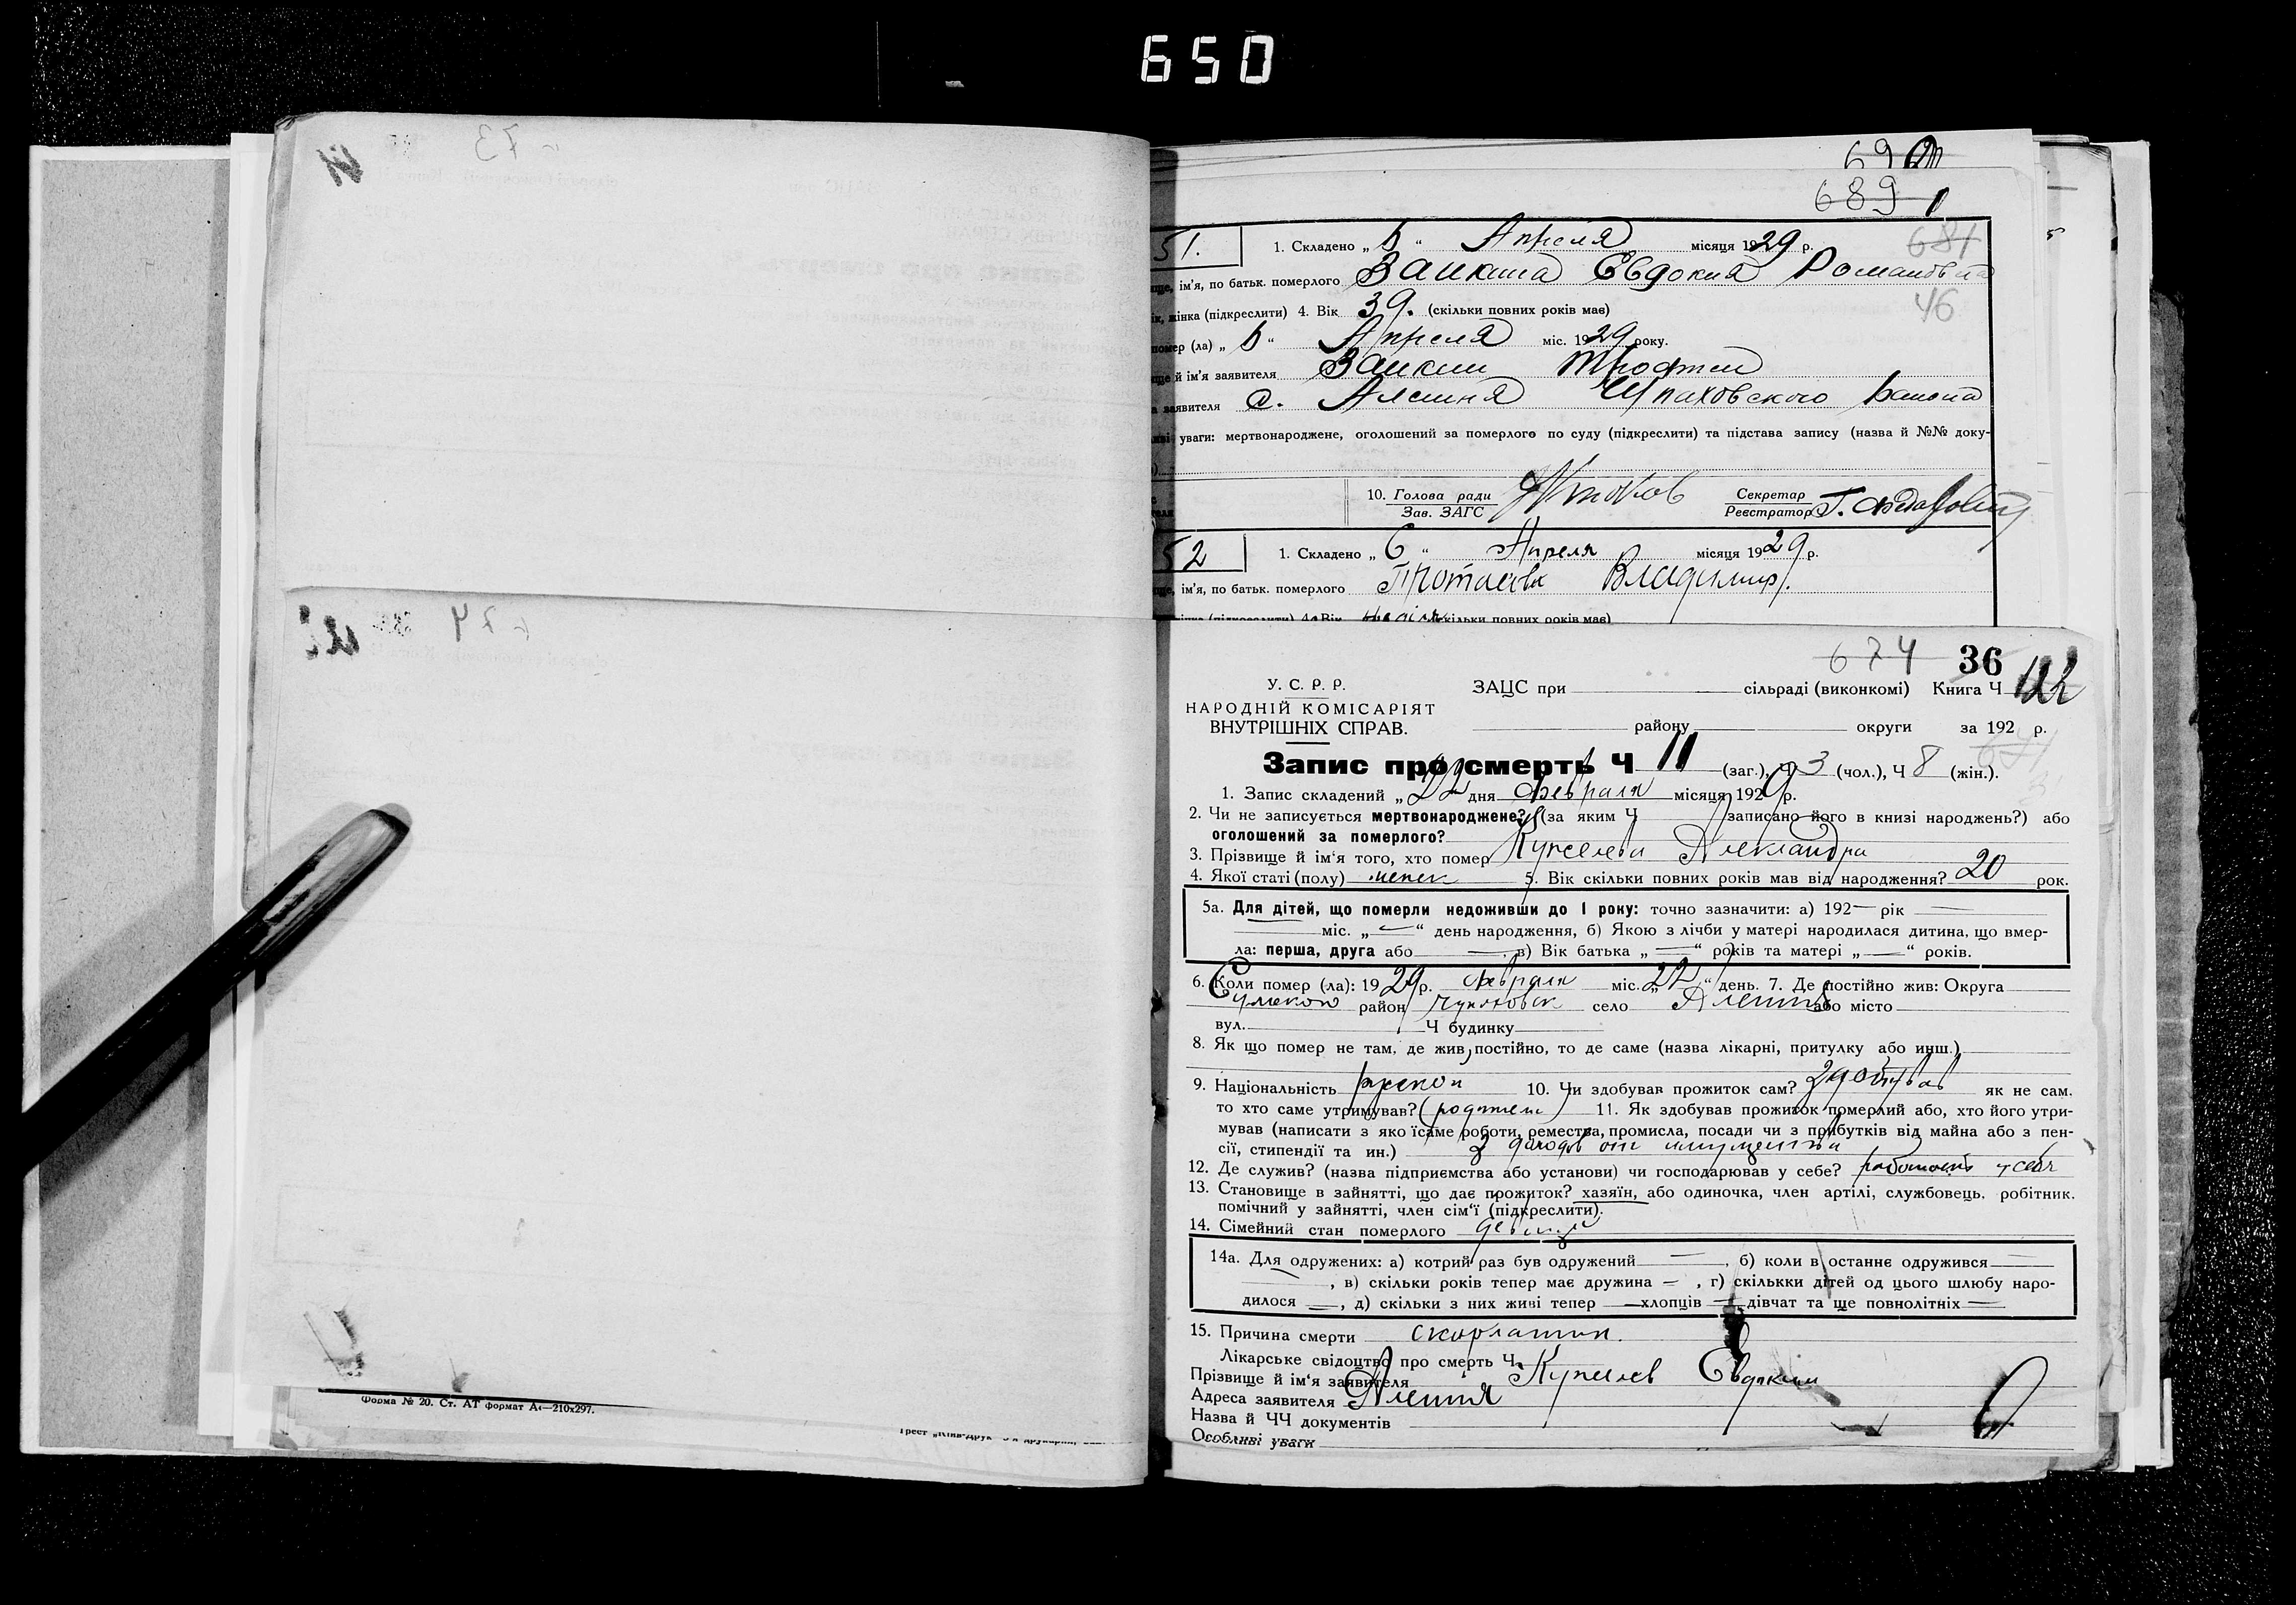 650
690
689 1
681
51.
1. Складено „ 6 “ Апреля місяця 1929 р.
ім'я, по батьк. померлого Заикина Евдокия Романовна
46
жінка (підкреслити) 4. Вік 39. (скільки повних років має)
помер (ла) „ 6 “ Апреля міс. 1929 року.
й ім'я заявителя Заикин Трофим
заявителя с. Алешня Чупаховского района
уваги: мертвонароджене, оголошений за померлого по суду (підкреслити) та підстава запису (назва й №№ доку-
10. Голова ради
Зав. ЗАГС
Секретар
Реєстратор
52
1. Складено „ 6 “ Апреля місяця 1929 р.
ім'я, по батьк. померлого Владимир.
674 36
У. С. Р. Р.
НАРОДНІЙ КОМІСАРІЯТ
ВНУТРІШНІХ СПРАВ.
ЗАЦС при сільраді (виконкомі) Книга Ч 122
району округи за 192 р.
Запис про смерть Ч 11 (заг.), Ч 3 (чол.), Ч 8 (жін.).
1. Запис складений „ 22 дня февраля місяця 1929 р.
2. Чи не записується мертвонароджене? (за яким Ч записано його в книзі народжень?) або
оголошений за померлого?
3. Прізвище й ім'я того, хто помер Александра
4. Якої статі (полу) 5. Вік скільки повних років мав від народження? 20 рок.
5а. Для дітей, що померли недоживши до 1 року: точно зазначити: а) 192— рік
міс. „—“ день народження, б) Якою з лічби у матері народилася дитина, що вмер-
ла: перша, друга або —, в) Вік батька „—“ років та матері „—“ років.
6. Коли помер (ла): 1929 р. февраля міс. „22“ день. 7. Де постійно жив: Округа
Сумской район село Алешня або місто
вул. Ч будинку
8. Як що помер не там, де жив постійно, то де саме (назва лікарні, притулку або инш.)
9. Національність руской 10. Чи здобував прожиток сам? здобував як не сам.
то хто саме утримував? (родители) 11. Як здобував прожиток померлий або, хто його утри-
мував (написати з якої саме роботи, ремества, промисла, посади чи з прибутків від майна або з пен-
сії, стипендії та ин.)
12. Де служив? (назва підприємства або установи) чи господарював у себе? у себя
13. Становище в зайнятті, що дає прожиток? хазяїн, або одиночка, член артілі, службовець, робітник.
помічний у зайнятті, член сім'ї (підкреслити).
14. Сімейний стан померлого девица
14а. Для одружених: а) котрий раз був одружений —, б) коли в останнє одружився —
—, в) скільки років тепер має дружина —, г) скількки дітей од цього шлюбу наро-
дилося —, д) скільки з них живі тепер —хлопців — дівчат та ще повнолітніх —
15. Причина смерти скорлатин.
Лікарське свідоцтво про смерть Ч
Прізвище й ім'я заявителя Евдоким
Адреса заявителя Алешня
Назва й ЧЧ документів
Особливі уваги
Форма № 20. Ст. АТ формат А4—210х297.